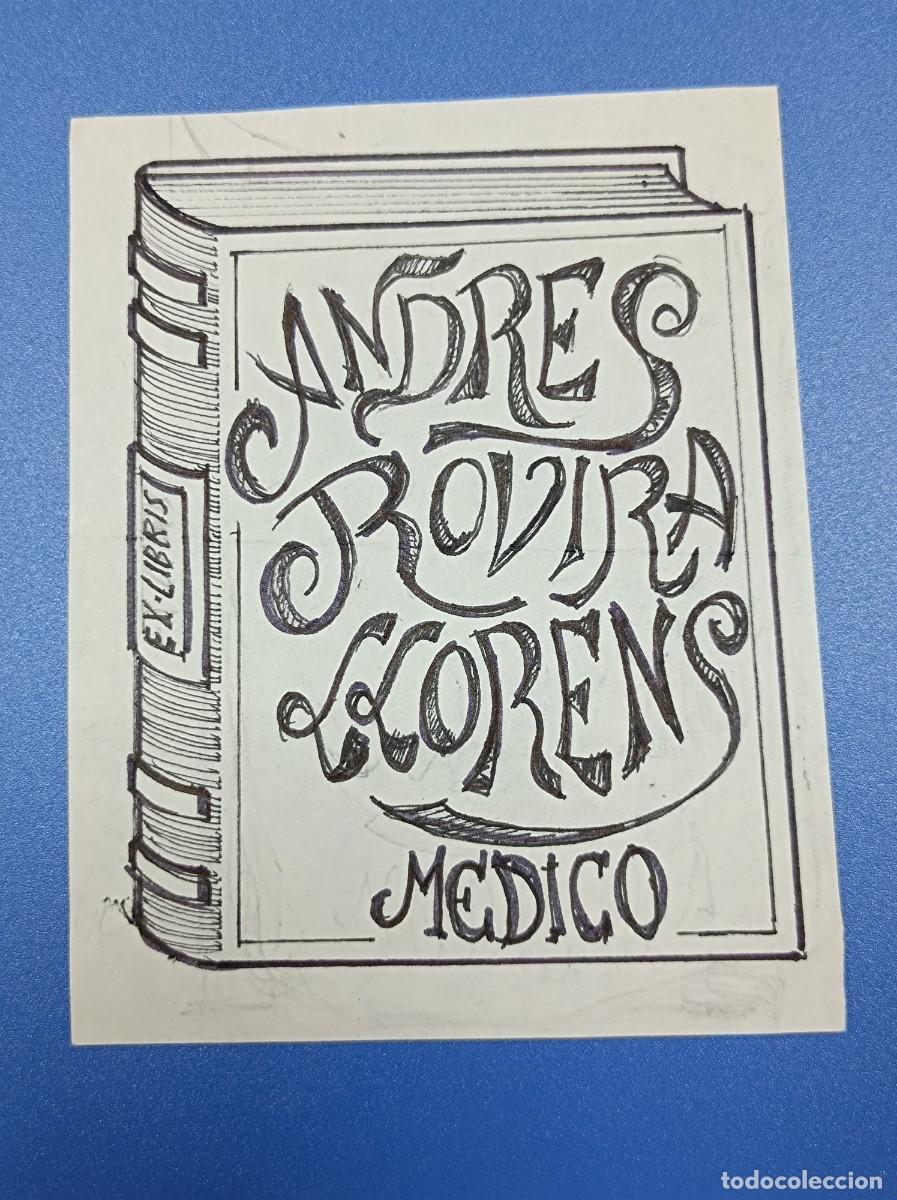 ANDRES
ROVIRA
LLORENS
MEDICO
EX-LIBRIS
todocoleccion